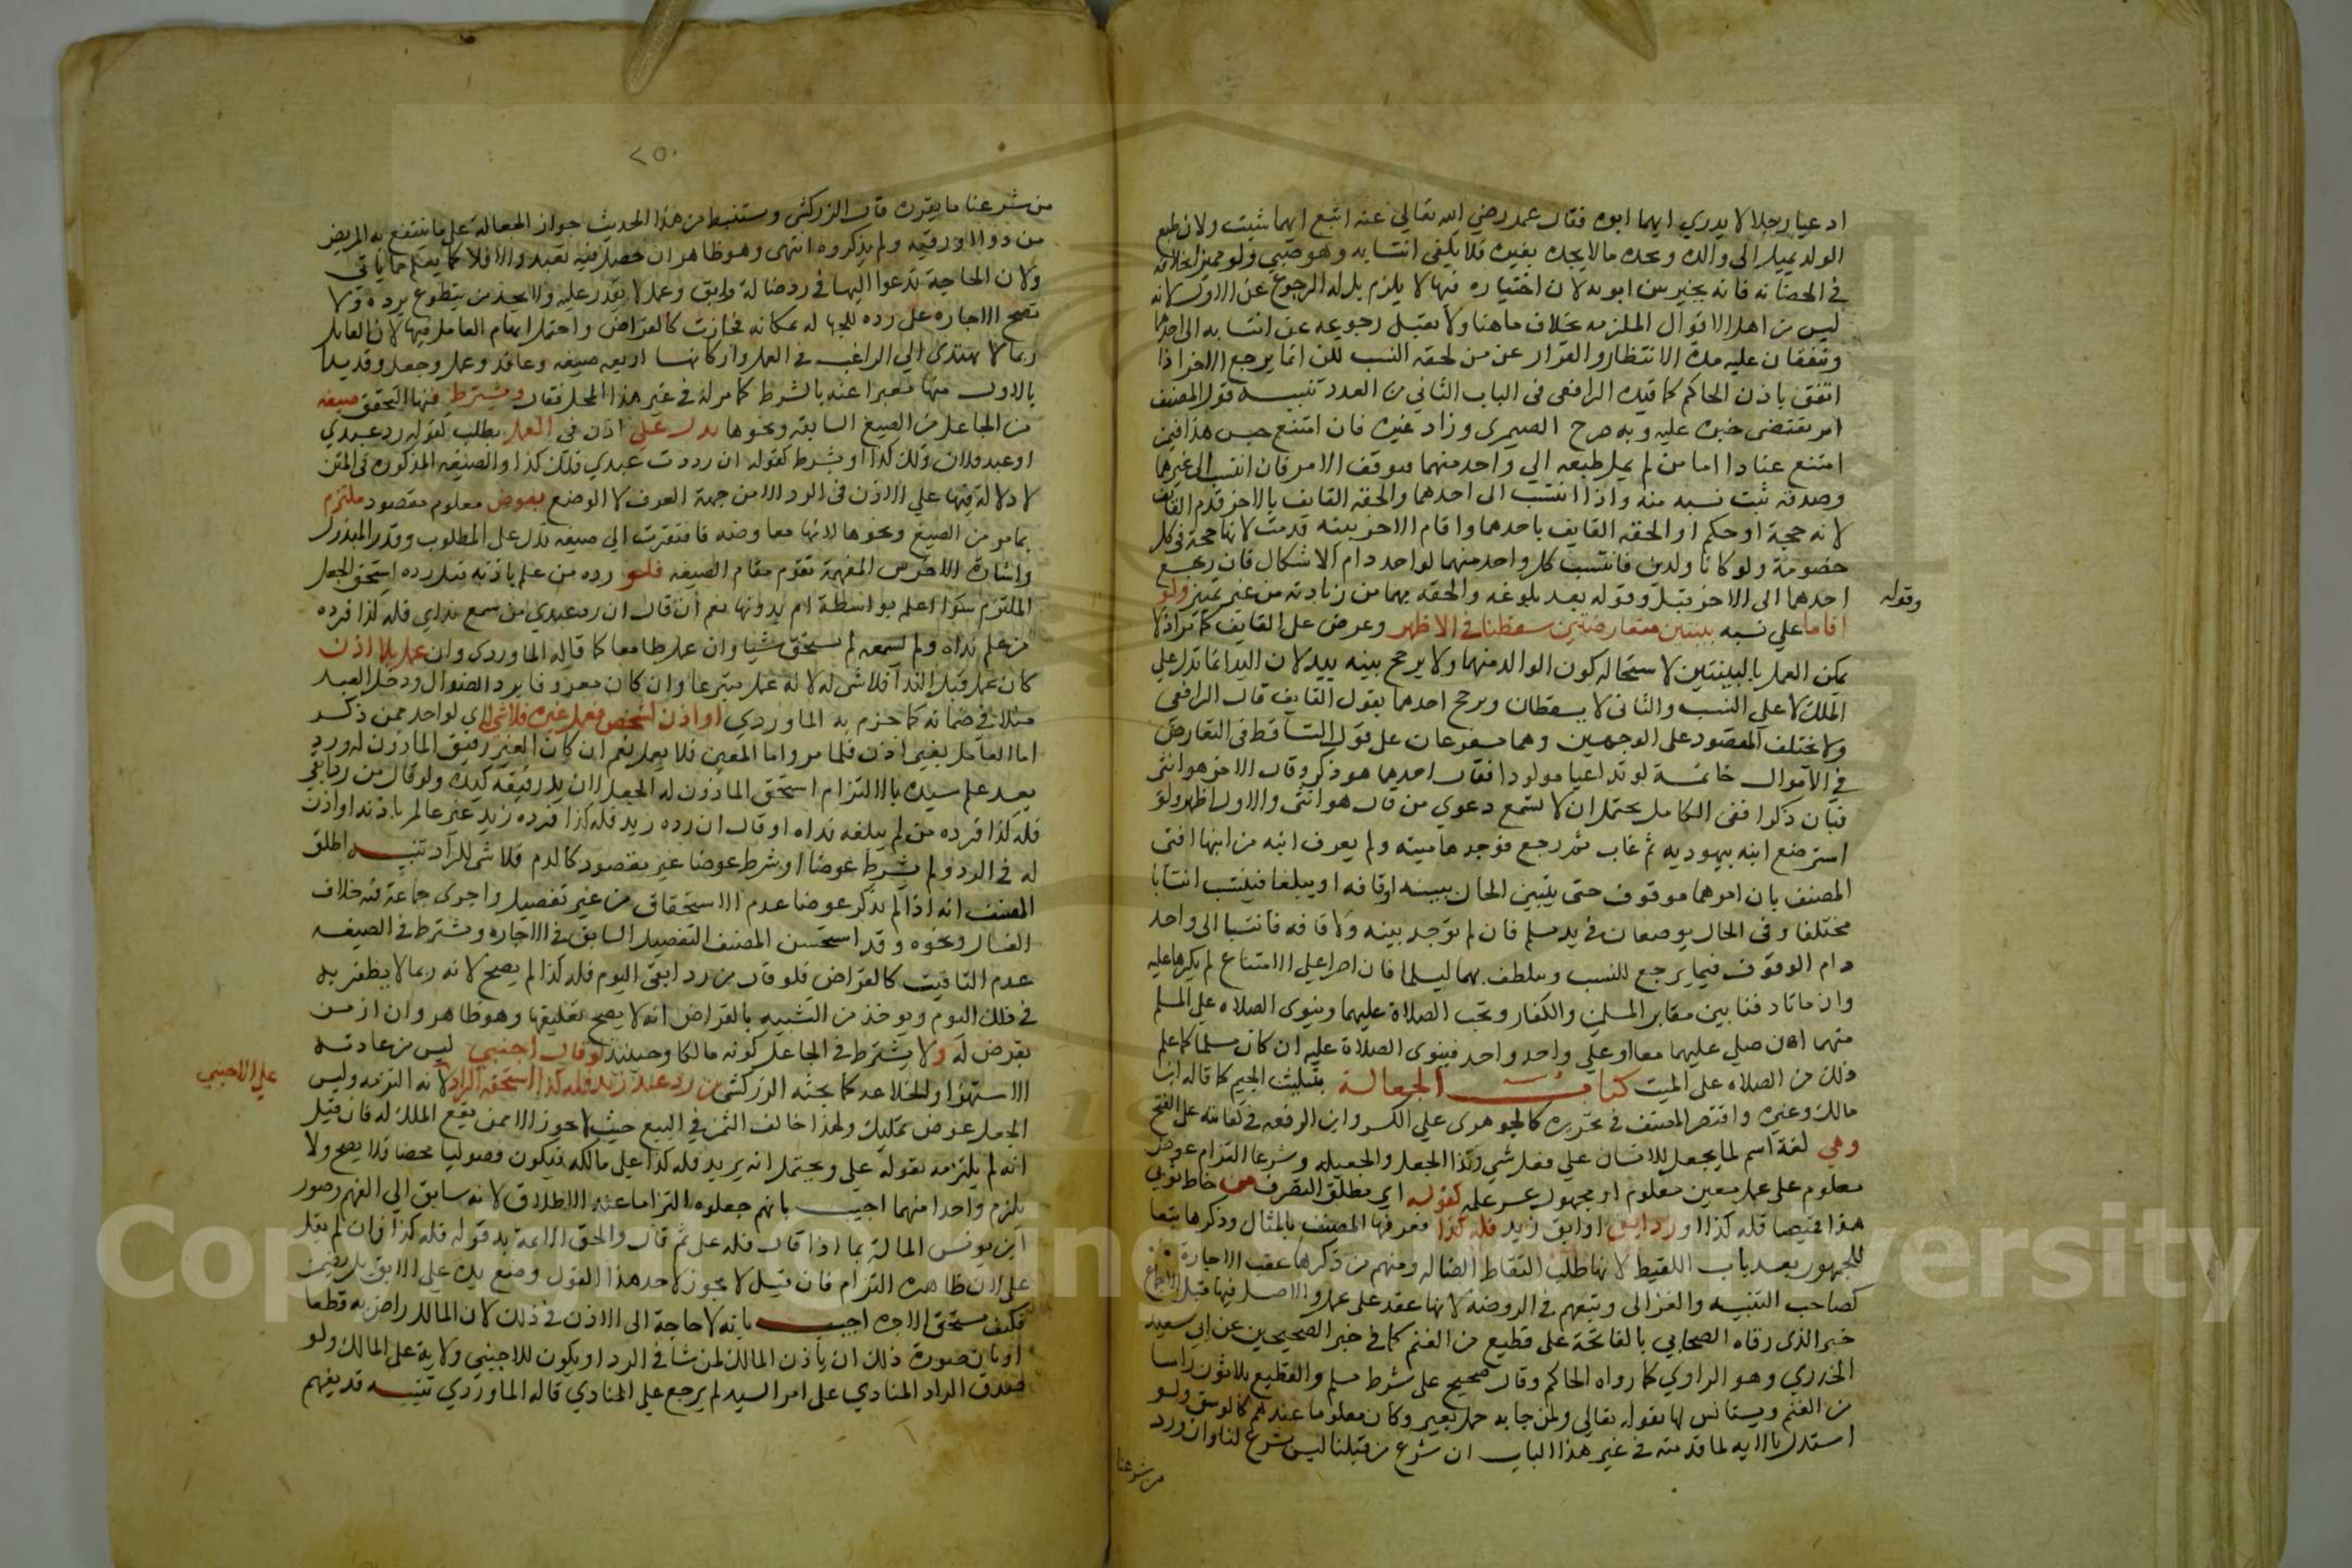 ادعيا رجلا لا يدري ايهما ابوه فقال عمر رضي الله تعالي عنه اتبع ايهما شيت ولان طبع
الولد يميل الى والده ويجده ما لا يجده بغيره فلا يكفي انتسابه وهو صبي ولو مميز بخلافه
في الحضانه فانه يخير بين ابويه لان اختياره فيها لا يلزم بل له الرجوع عن الاول لانه
ليس من اهل الاقوال الملزمه بخلاف ما هنا ولا يقبل رجوعه عن انتسابه الى احدهما
وينفقان عليه مدة الانتظار والقرار عن من لحقه النسب لكن انما يرجع الاخر اذا
انفق باذن الحاكم كما قيده الرافعي في الباب الثاني من العدد تنبيه قول المصنف
امر يقتضى جبره عليه وبه صرح الصيمري وزاد غيره فان امتنع حبس هذا فيمن
امتنع عنادا اما من لم يمل طبعه الي واحد منهما فيوقف الامر فان انتسب الى غيرهما
وصدقه ثبت نسبه منه واذا انتسب الى احدهما والحقه القايف بالاخر قدم القايف
لانه حجة او حكم او الحقه القايف باحدهما واقام الاخر بينه قدمت لانها حجة في كل
خصومة ولو كانا ولدين فانتسب كل واحد منهما لواحد دام الاشكال فان رجع
احدهما الى الاخر قبل وقوله بعد بلوغه والحقه بهما من زيادته من غير تمييز ولو
وقوله
اقاما علي نسبه بينتين متعارضتين سقطتا في الاظهر وعرض على القايف كما مر اذ لا
يمكن العمل بالبينتين لاستحالة كون الوالد منهما ولا يرجح بينه بيد لان اليد انما تدل علي
الملك لا علي النسب والثاني لا يسقطان ويرجح احدهما بقول القايف قال الرافعي
ولا يختلف المقصود على الوجهين وهما مفرعان على قول التساقط في التعارض
في الاموال خاتمة لو تداعيا مولودا فقال احدهما هو ذكر وقال الاخر هو انثى
فبان ذكرا ففي الكامل يحتمل ان لا تسمع دعوي من قال هو انثى والاول اظهر ولو
استرضع ابنه يهوديه ثم غاب ثم رجع فوجدها ميته ولم يعرف ابنه من ابنها افتى
المصنف بان امرهما موقوف حتى يتبين الحال ببينه او قافه او يبلغا فينتسب انتسابا
مختلفا وفي الحال يوضعان في يد مسلم فان لم توجد بينه ولا قافه فانتسبا الى واحد
دام الوقوف فيما يرجع للنسب ويتلطف بهما ليسلما فان اصرا علي الامتناع لم يكرها عليه
وان ماتا دفنا بين مقابر المسلمين والكفار وتجب الصلاة عليهما وينوى الصلاه علي المسلم
منهما ان صلي عليهما معا او علي واحد واحد فينوى الصلاة عليه ان كان مسلما كما علم
ذلك من الصلاه على الميت كتاب الجعالة بتثليث الجيم كما قاله ابن
مالك وغيره واقتصر المصنف في تحريره كالجوهرى علي الكسر وابن الرفعه في كفايته على الفتح
وهي لغة اسم لما يجعل للانسان علي فعل شي وكذا الجعل والجعيلة وشرعا التزام عوض
معلوم على عمل معين معلوم او مجهول عسر علمه كقوله اي مطلق التصرف من خاط ثوبي
هذا قميصا فله كذا او رد ابقي او ابق زيد فله كذا فعرفها المصنف بالمثال وذكرها تبعا
للجمهور بعد باب اللقيط لانها طلب التقاط الضاله ومنهم من ذكرها عقب الاجارة
كصاحب التنبيه والغزالى وتبعهم في الروضة لانها عقد على عمل والاصل فيها قبل الاجماع
خبر الذى رقاه الصحابي بالفاتحة على قطيع من الغنم كما في خبر الصحيحين عن ابي سعيد
الخدري وهو الراوي كما رواه الحاكم وقال صحيح على شرط مسلم والقطيع ثلاثون راسا
من الغنم ويستانس لها بقوله تعالى ولمن جا به حمل بعير وكان معلوما عندهم كالوسق ولو
استدل بالايه لما قدمته في غير هذا الباب ان شرع من قبلنا ليس شرع لنا وان ورد
من شرعنا
٢٥٠
من شرعنا ما يقرره قال الزركشي ويستنبط من هذا الحديث جواز الجعالة على ما ينتفع به المريض
من دوا او رقيه ولم يذكروه انتهى وهو ظاهر ان حصل فيه تعب والا فلا كما يعلم مما ياتي
ولان الحاجة تدعوا اليها في رد ضالة وابق وعمل لا يقدر عليه ولا يجد من يتطوع برده ولا
تصح الاجاره على رده للجهالة بمكانه فجازت كالقراض واحتمل ابهام العامل فيها لان القايل
ربما لا يهتدى الي الراغب في العمل واركانها اربعه صيغه وعاقد وعمل وجعل وقد بدا
بالاول منها معبرا عنه بالشرط كما مر له في غير هذا المحل فقال ويشترط فيها لتحقق صيغه
من الجاعل من الصيغ السابقه ونحوها تدل علي اذن في العمل بطلب كقوله رد عبدي
او عبد فلان ولك كذا او بشرط كقوله ان رددت عبدي فلك كذا والصيغه المذكوره في المتن
لا دلالة فيها علي الاذن في الرد الا من جهة العرف لا الوضع بعوض معلوم مقصود ملتزم
بما مر من الصيغ ونحوها لانها معاوضه فافتقرت الي صيغه تدل على المطلوب وقدر المبذول
واشارة الاخرس المفهمة تقوم مقام الصيغه فلو رده من علم باذنه قبل رده استحق الجعل
الملتزم سوا اعلمه بواسطة ام بدونها نعم ان قال ان رد عبدي من سمع نداي فله كذا فرده
من علم نداه ولم يسمعه لم يستحق شيا وان عمل طامعا كما قاله الماوردي وان عمل بلا اذن
كان عمل قبل الندا فلا شي له لانه عمل متبرعا وان كان معروفا برد الضوال ودخل العبد
مثلا في ضمانه كما جزم به الماوردي او اذن لشخص فعمل غيره فلا شي له اي لواحد ممن ذكر
اما العامل بغير اذن فلما مر واما المعين فلا يعمل نعم ان كان الغير رقيق الماذون له ورد
بعد علم سيده بالالتزام استحق الماذون له الجعل لان يد رقيقه كيده ولو قال من رد ابقي
فله كذا فرده من لم يبلغه نداه او قال ان رده زيد فله كذا فرده زيد غير عالم باذنه او اذن
له في الرد ولم يشرط عوضا او شرط عوضا غير مقصود كالدم فلا شي للراد تنبيه اطلق
المصنف انه اذا لم يذكر عوضا عدم الاستحقاق من غير تفصيل واجرى جماعة فيه خلاف
الغسال ونحوه وقد استحسن المصنف التفصيل السابق في الاجاره ويشترط في الصيغه
عدم التاقيت كالقراض فلو قال من رد ابقي اليوم فله كذا لم يصح لانه ربما لا يظفر به
في ذلك اليوم ويوخذ من التشبيه بالقراض انه لا يصح تعليقها وهو ظاهر وان لم من
تعرض له ولا يشترط في الجاعل كونه مالكا وحينئذ لو قال اجنبي ليس من عادته
الاستهزا والخلاعه كما بحثه الزركشي من رد عبد زيد فله كذا استحقه الراد لانه التزمه وليس
علي الاجنبي
الجعل عوض تمليك ولهذا خالف الثمن في البيع حيث لا يجوز الا ممن يقع الملك له فان قيل
انه لم يلتزمه بقوله علي ويحتمل انه يريد فله كذا علي مالكه فيكون فضوليا محضا فلا يصح ولا
يلزم واحدا منهما اجيب بانهم جعلوه التزاما عند الاطلاق لانه سابق الي الفهم وصور
ابن يونس المسالة بما اذا قال فله على ثم قال والحق الايمة به قوله فله كذا وان لم يقل
على لان ظاهره التزام فان قيل لا يجوز لاحد هذا القول وضع يده علي الابق بل يضمن
فكيف يستحق الاجره اجيب بانه لا حاجة الى الاذن في ذلك لان المالك راض به قطعا
او بان صورة ذلك ان ياذن المالك لمن شا في الرد او يكون للاجنبي ولاية على المالك ولو
صدق الراد المنادي على امر السيد لم يرجع علي المنادي قاله الماوردي تنبيه قد يفهم